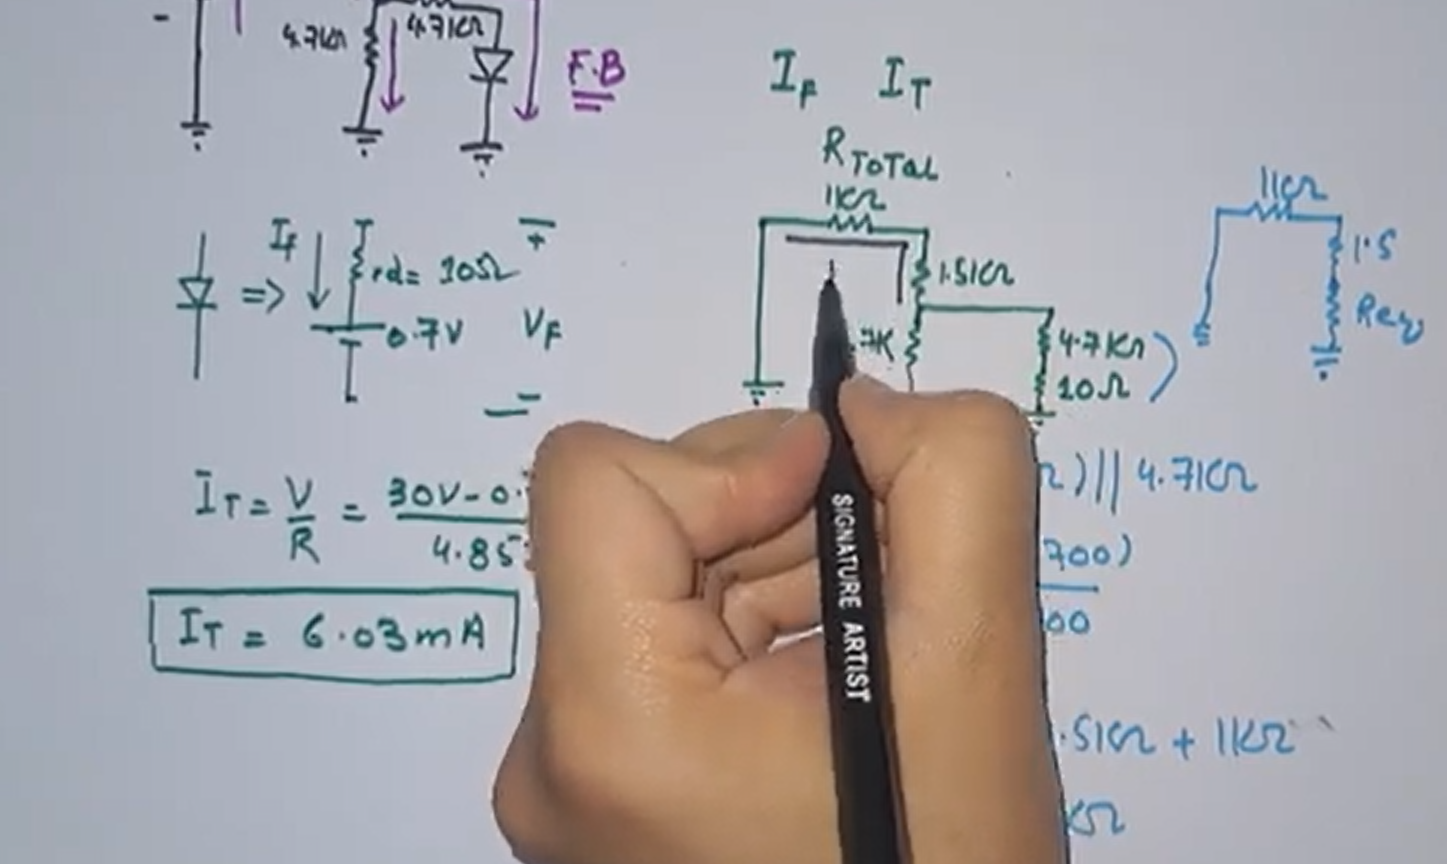 -
4.7KΩ
4.7KΩ
F.B
I_F I_T
R_TOTAL
1KΩ
1.5KΩ
.7K
4.7KΩ
10Ω
1KΩ
1.5
Req
I_f
=>
rd = 10Ω
0.7V
+
V_F
-
I_T = V/R = 30V-0. / 4.85
I_T = 6.03mA
Ω) || 4.7KΩ
700)
00
.5KΩ + 1KΩ
KΩ
SIGNATURE ARTIST